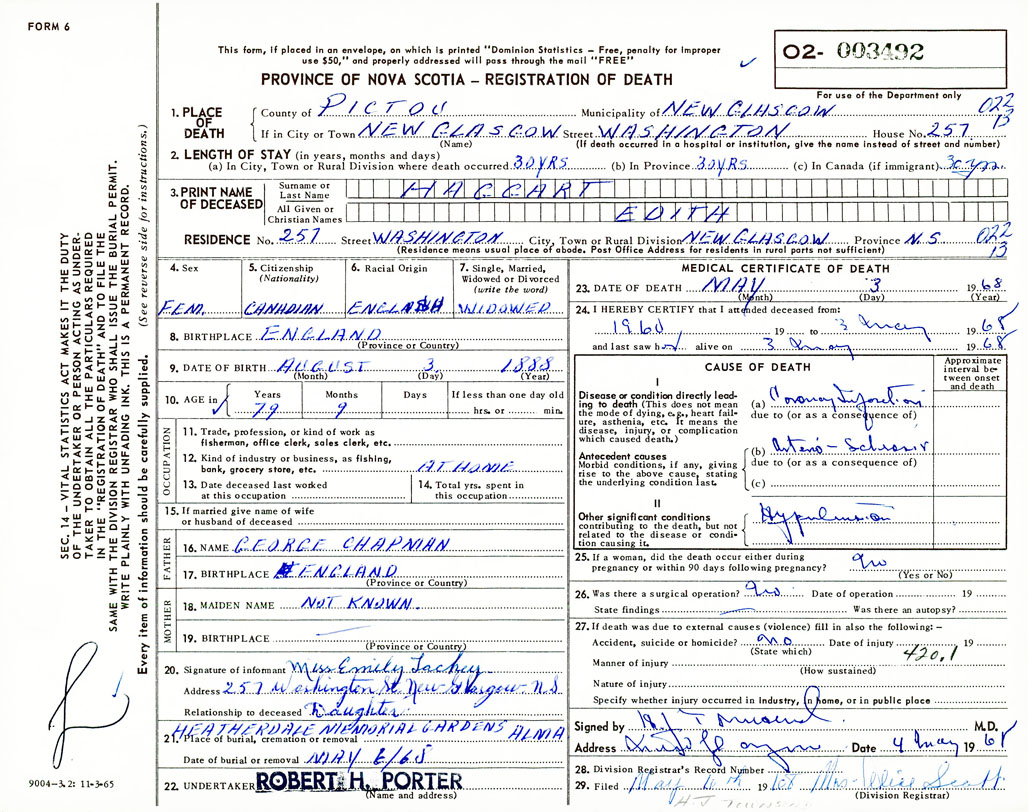 FORM 6
This form, if placed in an envelope, on which is printed "Dominion Statistics – Free, penalty for improper
use $50," and properly addressed will pass through the mail "FREE"
PROVINCE OF NOVA SCOTIA – REGISTRATION OF DEATH
02- 003492
For use of the Department only
1. PLACE OF DEATH
County of PICTOU Municipality of NEW GLASGOW 022
If in City or Town NEW GLASGOW Street WASHINGTON House No. 257 13
(Name) (If death occurred in a hospital or institution, give the name instead of street and number)
2. LENGTH OF STAY (in years, months and days)
(a) In City, Town or Rural Division where death occurred 30 YRS (b) In Province 30 YRS (c) In Canada (if immigrant) 30 yrs.
3. PRINT NAME OF DECEASED
Surname or Last Name HAGGART
All Given or Christian Names EDITH
RESIDENCE No. 257 Street WASHINGTON City, Town or Rural Division NEW GLASGOW Province N.S. 022
(Residence means usual place of abode. Post Office Address for residents in rural parts not sufficient) 13
4. Sex
FEM.
5. Citizenship
(Nationality)
CANADIAN
6. Racial Origin
ENGLISH
7. Single, Married,
Widowed or Divorced
(write the word)
WIDOWED
8. BIRTHPLACE ENGLAND
(Province or Country)
9. DATE OF BIRTH AUGUST 3 1888
(Month) (Day) (Year)
10. AGE in Years Months Days If less than one day old
79 9 hrs. or min.
OCCUPATION
11. Trade, profession, or kind of work as
fisherman, office clerk, sales clerk, etc.
12. Kind of industry or business, as fishing,
bank, grocery store, etc. AT HOME
13. Date deceased last worked
at this occupation
14. Total yrs. spent in
this occupation
15. If married give name of wife
or husband of deceased
FATHER
16. NAME GEORGE CHAPMAN
17. BIRTHPLACE ENGLAND
(Province or Country)
MOTHER
18. MAIDEN NAME NOT KNOWN.
19. BIRTHPLACE
(Province or Country)
20. Signature of informant Miss Emily
Address 257 Washington St. New Glasgow N.S
Relationship to deceased Daughter.
HEATHERDALE MEMORIAL GARDENS ALMA
21. Place of burial, cremation or removal
Date of burial or removal MAY 6/68
22. UNDERTAKER ROBERT H. PORTER
(Name and address)
MEDICAL CERTIFICATE OF DEATH
23. DATE OF DEATH MAY 3 1968
(Month) (Day) (Year)
24. I HEREBY CERTIFY that I attended deceased from:
1960 19 to 3 May 1968
and last saw h alive on 3 May 1968
CAUSE OF DEATH
Approximate
interval be-
tween onset
and death
I
Disease or condition directly lead-
ing to death (This does not mean
the mode of dying, e.g., heart fail-
ure, asthenia, etc. It means the
disease, injury, or complication
which caused death.)
(a) Coronary
due to (or as a consequence of)
Antecedent causes
Morbid conditions, if any, giving
rise to the above cause, stating
the underlying condition last.
(b)
due to (or as a consequence of)
(c)
II
Other significant conditions
contributing to the death, but not
related to the disease or condi-
tion causing it.
Hypertension
25. If a woman, did the death occur either during
pregnancy or within 90 days following pregnancy? no
(Yes or No)
26. Was there a surgical operation? no Date of operation 19
State findings Was there an autopsy?
27. If death was due to external causes (violence) fill in also the following: –
Accident, suicide or homicide? no Date of injury 19
(State which) 420.1
Manner of injury
(How sustained)
Nature of injury
Specify whether injury occurred in industry, in home, or in public place
Signed by M.D.
Address Date 4 May 1968
28. Division Registrar's Record Number
29. Filed May 10th 1968 Mrs. Scott
(Division Registrar)
SEC. 14 – VITAL STATISTICS ACT MAKES IT THE DUTY
OF THE UNDERTAKER OR PERSON ACTING AS UNDER-
TAKER TO OBTAIN ALL THE PARTICULARS REQUIRED
IN THE "REGISTRATION OF DEATH" AND TO FILE THE
SAME WITH THE DIVISION REGISTRAR WHO SHALL ISSUE THE BURIAL PERMIT.
WRITE PLAINLY WITH UNFADING INK. THIS IS A PERMANENT RECORD.
Every item of information should be carefully supplied. (See reverse side for instructions.)
9004-3.2: 11-3-65